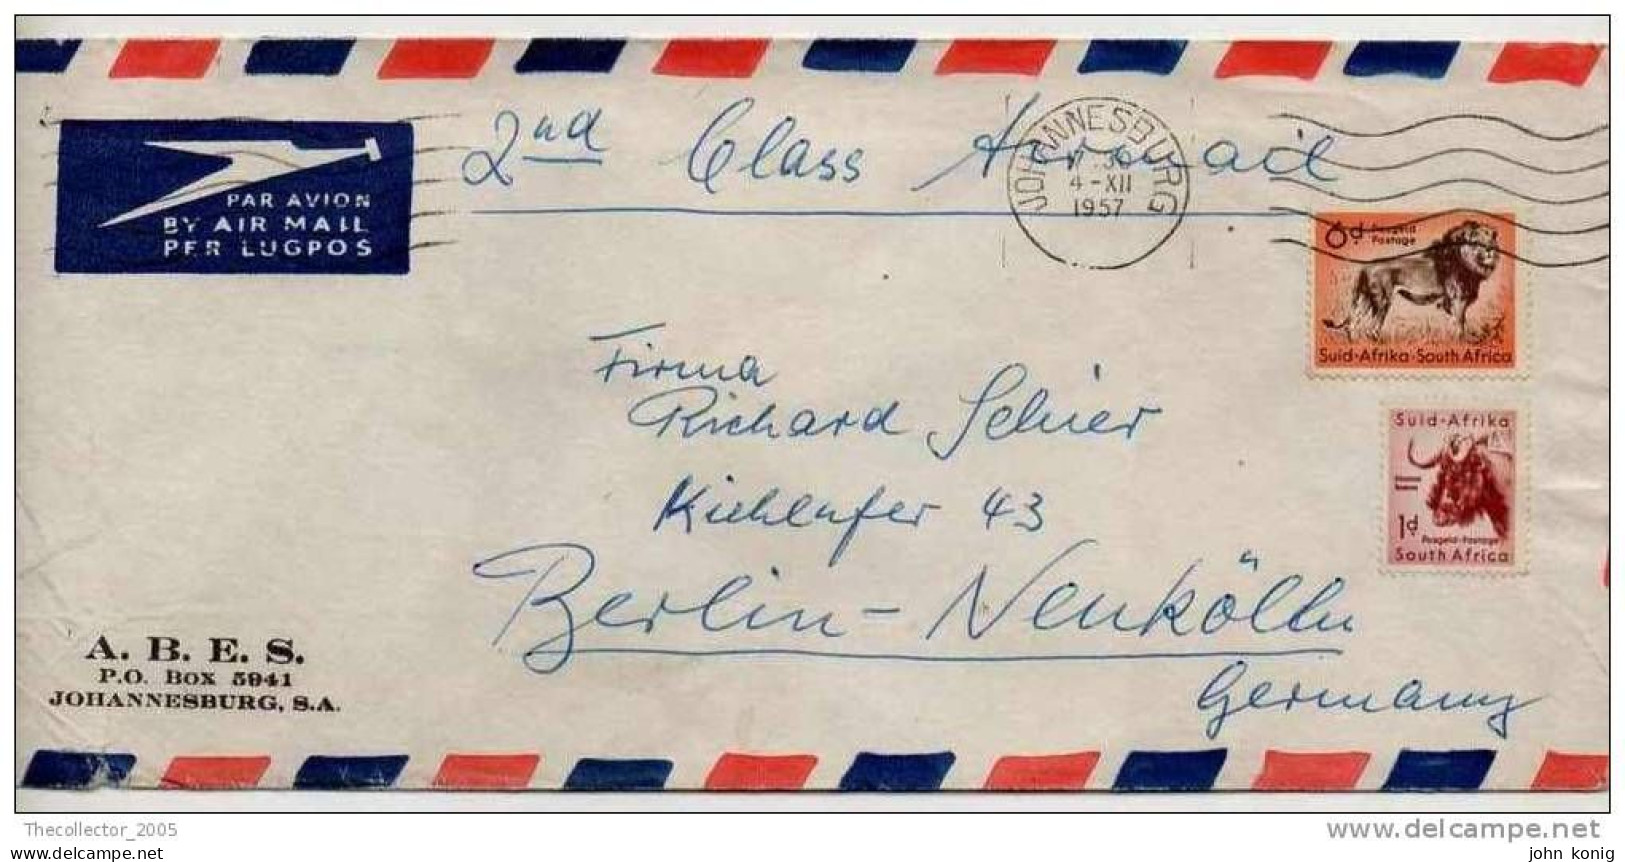 2nd Class Airmail
JOHANNESBURG
4-XII
1957
PAR AVION
BY AIR MAIL
PER LUGPOS
6d Posgeld
Postage
Suid-Afrika-South Africa
Firma
Richard Schier
Kiehlufer 43
Berlin-Neukölln
Germany
Suid-Afrika
1d Posgeld-Postage
South Africa
A. B. E. S.
P.O. BOX 5941
JOHANNESBURG, S.A.
Thecollector_2005
www.delcampe.net
john konig